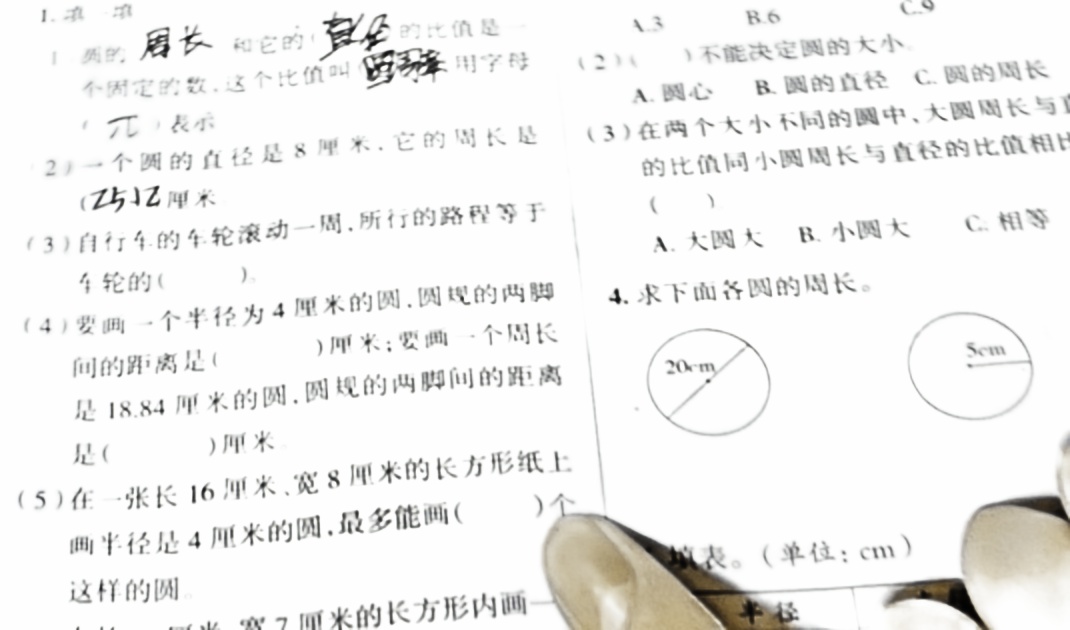 1. 填一填
圆的 周长 和它的( 直径 的比值是一
个固定的数,这个比值叫 圆周率 用字母
( π )表示
(2)一个圆的直径是8厘米,它的周长是
(2512厘米
(3)自行车的车轮滚动一周,所行的路程等于
车轮的( )。
(4)要画一个半径为4厘米的圆,圆规的两脚
间的距离是( )厘米;要画一个周长
是18.84厘米的圆,圆规的两脚间的距离
是( )厘米
(5)在一张长16厘米、宽8厘米的长方形纸上
画半径是4厘米的圆,最多能画( )个
这样的圆
厘米,宽7厘米的长方形内画一
A.3 B.6 C.9
(2)( )不能决定圆的大小
A. 圆心 B. 圆的直径 C. 圆的周长
(3)在两个大小不同的圆中,大圆周长与直
的比值同小圆周长与直径的比值相比
( )
A. 大圆大 B. 小圆大 C. 相等
4. 求下面各圆的周长。
20cm 5cm
填表。(单位:cm)
半径